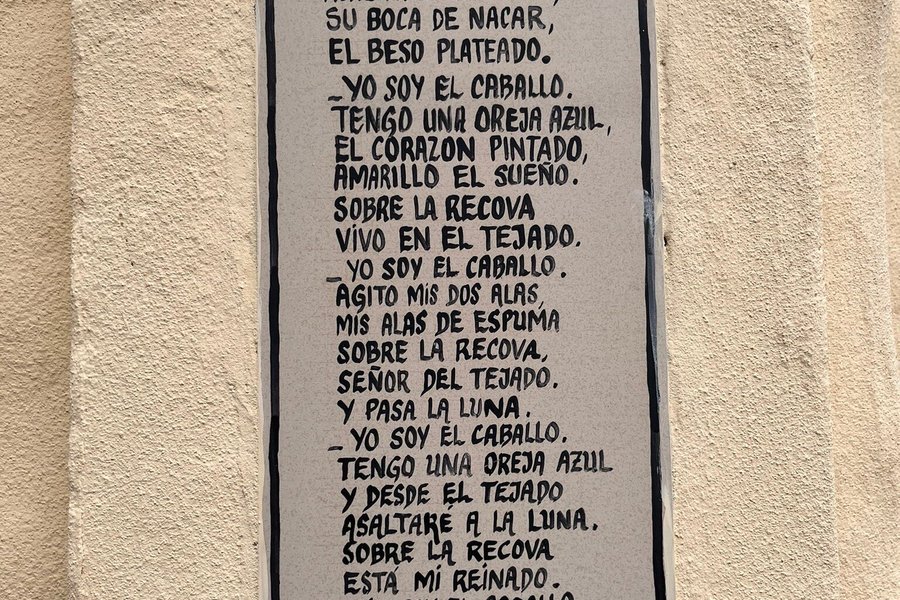 SU BOCA DE NACAR,
EL BESO PLATEADO.
_YO SOY EL CABALLO.
TENGO UNA OREJA AZUL,
EL CORAZON PINTADO,
AMARILLO EL SUEÑO.
SOBRE LA RECOVA
VIVO EN EL TEJADO.
_YO SOY EL CABALLO.
AGITO MIS DOS ALAS,
MIS ALAS DE ESPUMA
SOBRE LA RECOVA,
SEÑOR DEL TEJADO.
Y PASA LA LUNA.
_YO SOY EL CABALLO.
TENGO UNA OREJA AZUL
Y DESDE EL TEJADO
ASALTARÉ A LA LUNA.
SOBRE LA RECOVA
ESTÁ MI REINADO.